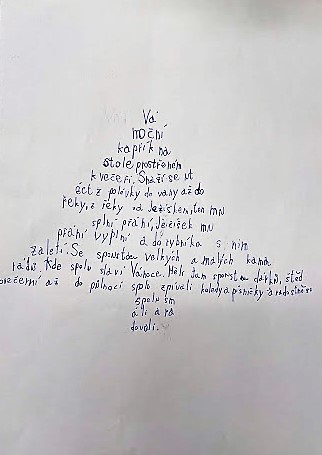 Vá
noční
kapřík na
stole prostřeném
k večeři. Snaží se ut
éct z polívky do vany až do
řeky, z řeky od Ježíškem, ten mu
splní přání, Ježíšek mu
přání vyplní a do rybníka s ním
zaletí. Se spoustou velkých a malých kama
rádů. Kde spolu slaví Vánoce. Měli tam spoustu dárků, štěd
ovečerní až do půlnoci spolu zpívali koledy a písničky a radostně se
spolu sm
áli a ra
dovali.